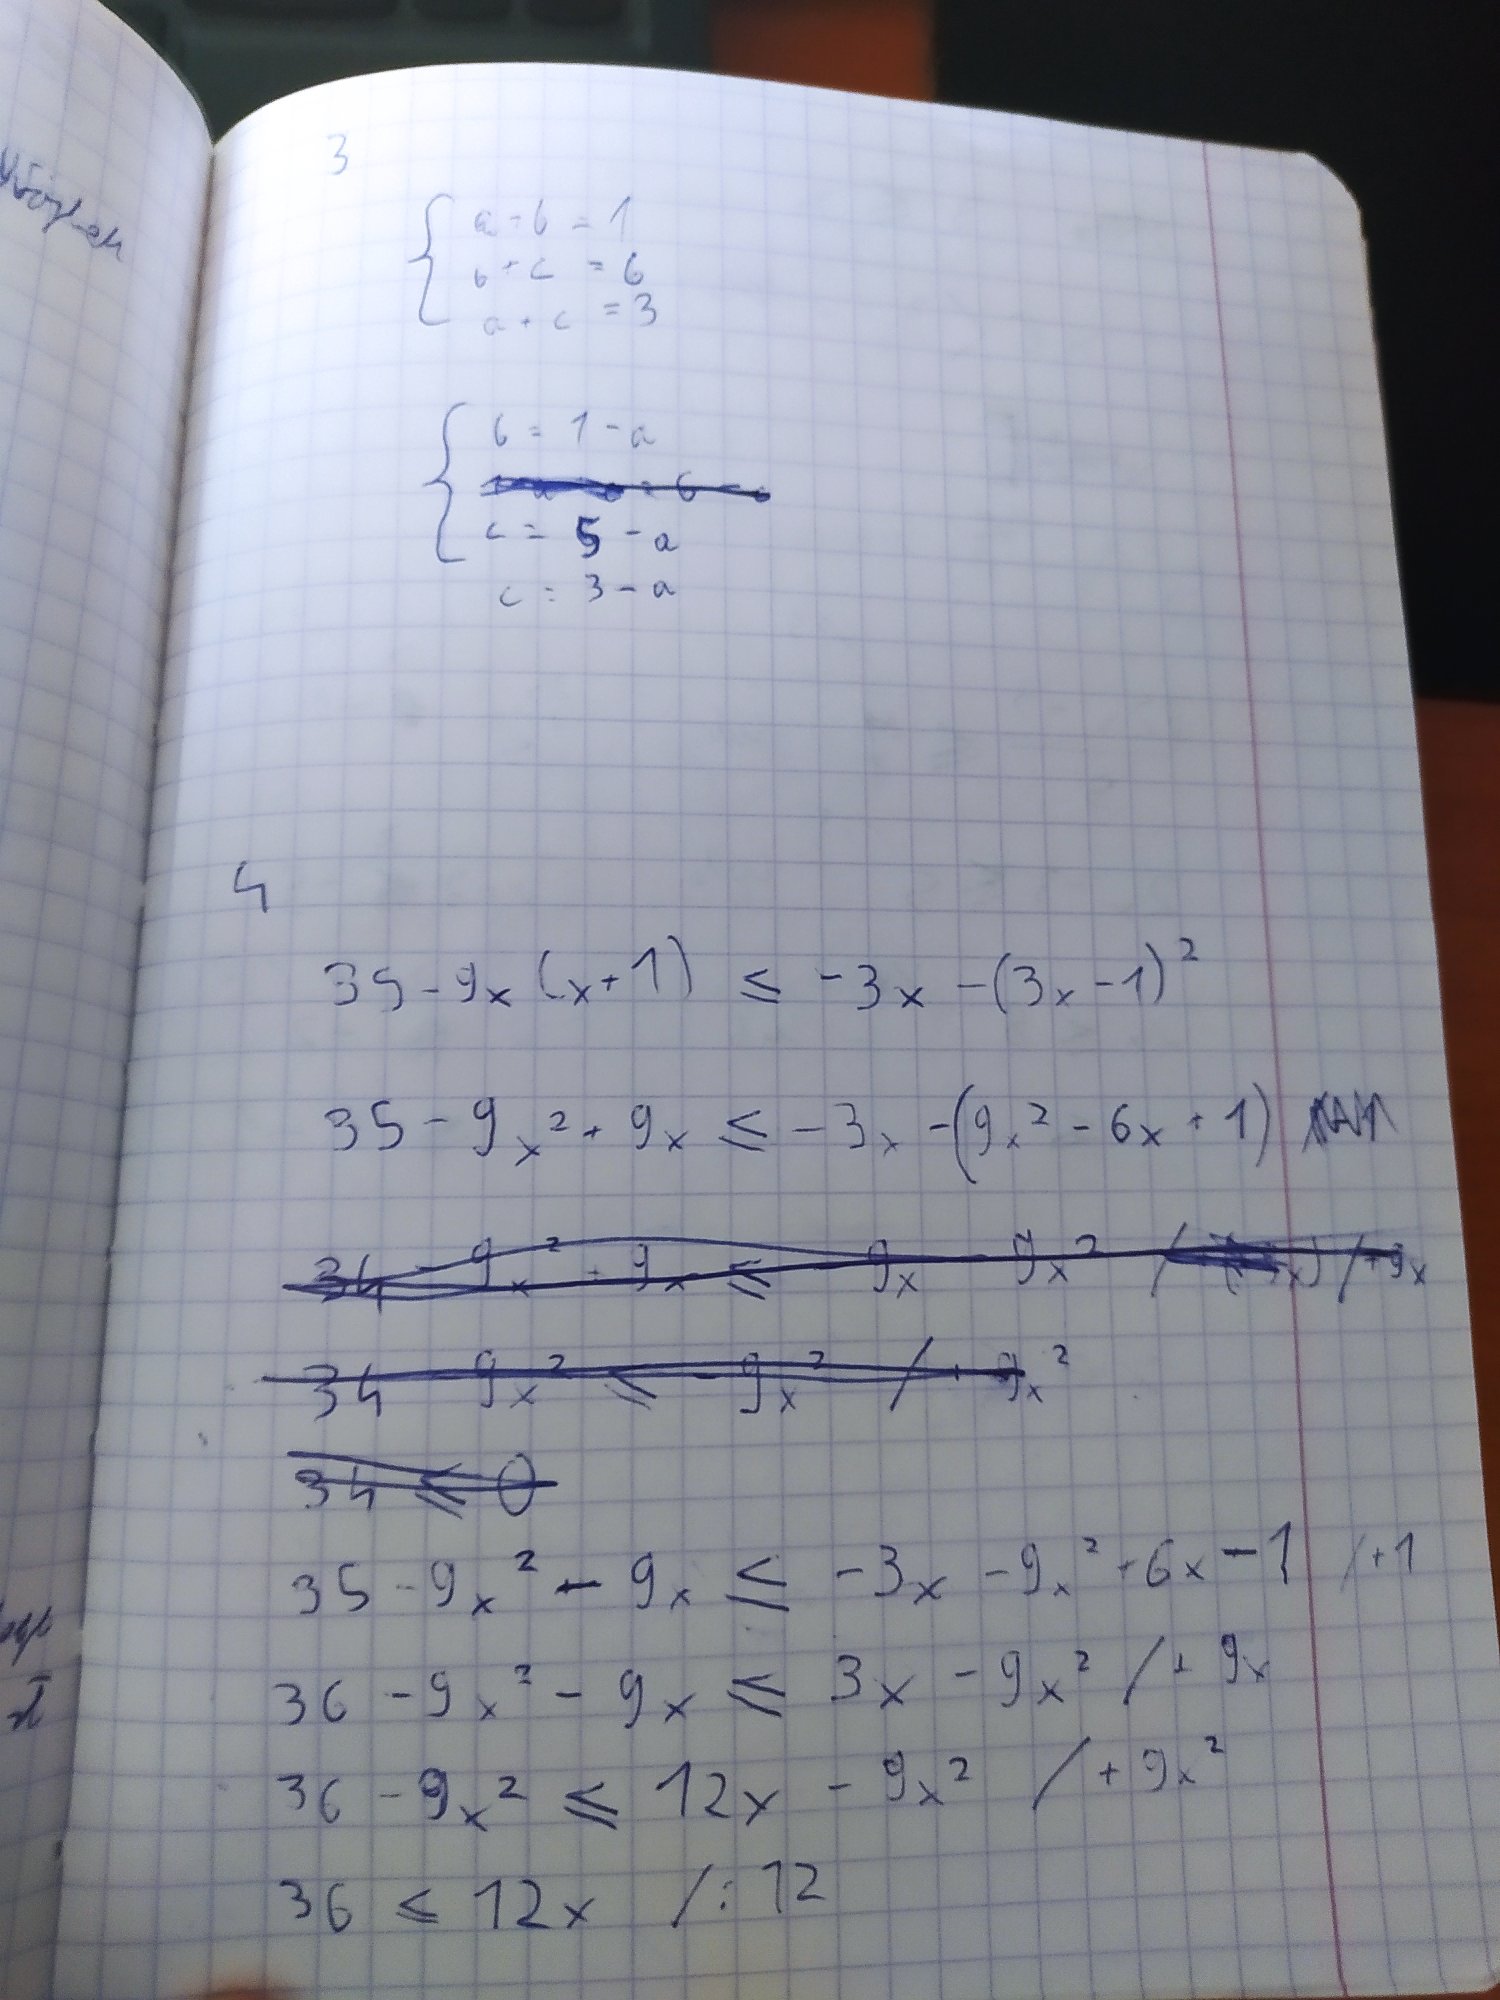 3
a + b = 1
b + c = 6
a + c = 3
b = 1 - a
c = 5 - a
c = 3 - a
4
35 - 9x (x+1) ≤ -3x - (3x - 1)²
35 - 9x² + 9x ≤ -3x - (9x² - 6x + 1)
34 - 9x² + 9x ≤ 9x - 9x² / +9x
34 - 9x² ≤ - 9x² / + 9x²
34 ≤ 0
35 - 9x² - 9x ≤ -3x - 9x² + 6x - 1 / +1
36 - 9x² - 9x ≤ 3x - 9x² / + 9x
36 - 9x² ≤ 12x - 9x² / + 9x²
36 ≤ 12x / : 12